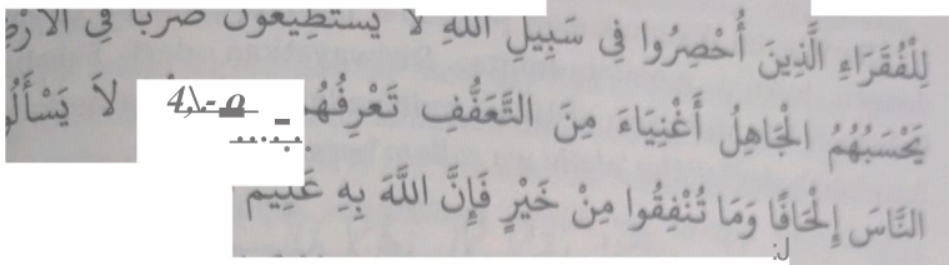 لِلْفُقَرَاءِ الَّذِينَ أُحْصِرُوا فِي سَبِيلِ اللَّهِ لَا يَسْتَطِيعُونَ ضَرْبًا فِي الْأَرْضِ
يَحْسَبُهُمُ الْجَاهِلُ أَغْنِيَاءَ مِنَ التَّعَفُّفِ تَعْرِفُهُمْ لَا يَسْأَلُو
النَّاسَ إِلْحَافًا وَمَا تُنْفِقُوا مِنْ خَيْرٍ فَإِنَّ اللَّهَ بِهِ عَلِيمٌ